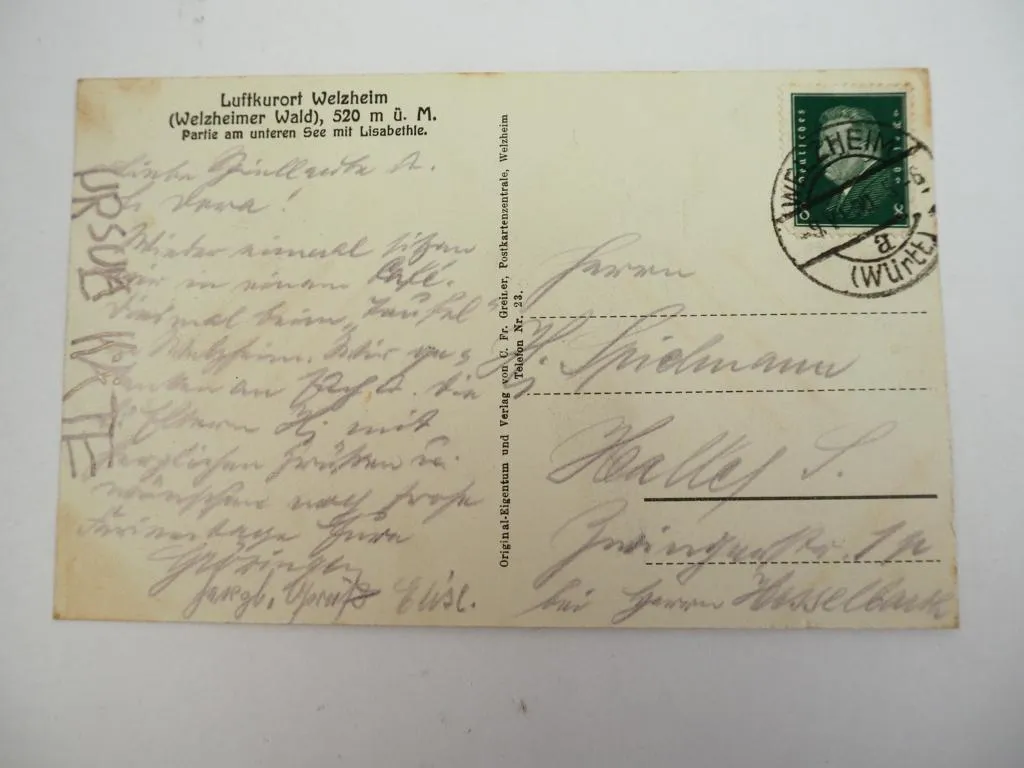 Luftkurort Welzheim
(Welzheimer Wald), 520 m ü. M.
Partie am unteren See mit Lisabethle.
Liebe
Vera!
Wieder einmal sitzen
wir in einem Café.
Diesmal beim
Welzheim. Wir
an Euch u. die
Eltern mit
herzlichen Grüßen u.
wünschen noch frohe
Ferientage Eure
herzl. Gruß Elise.
URSULA KARTE
Original-Eigentum und Verlag von C. Fr. Greiner, Postkartenzentrale, Welzheim
Telefon Nr. 23.
Deutsches Reich
8 8
WELZHEIM
a
(Württ)
Herrn
H. Spielmann
Halle S.
Zwingerstr. 1a
bei Herrn Hesselbarth